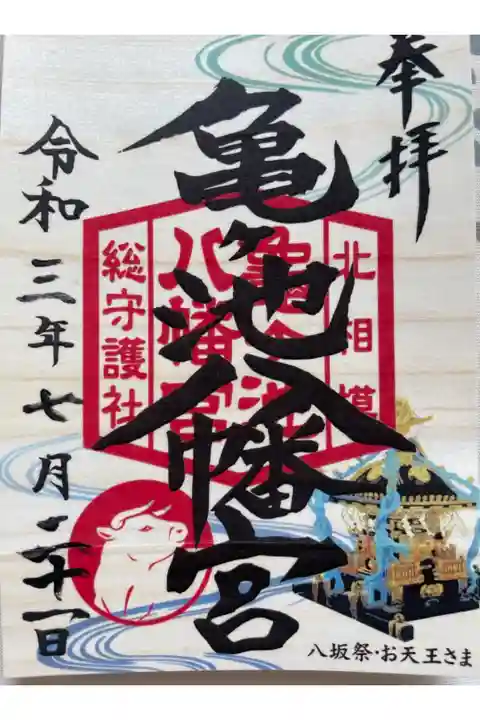 奉拝
亀ヶ池八幡宮
北相模
亀ヶ池
八幡宮
総守護社
令和三年七月二十一日
八坂祭・お天王さま